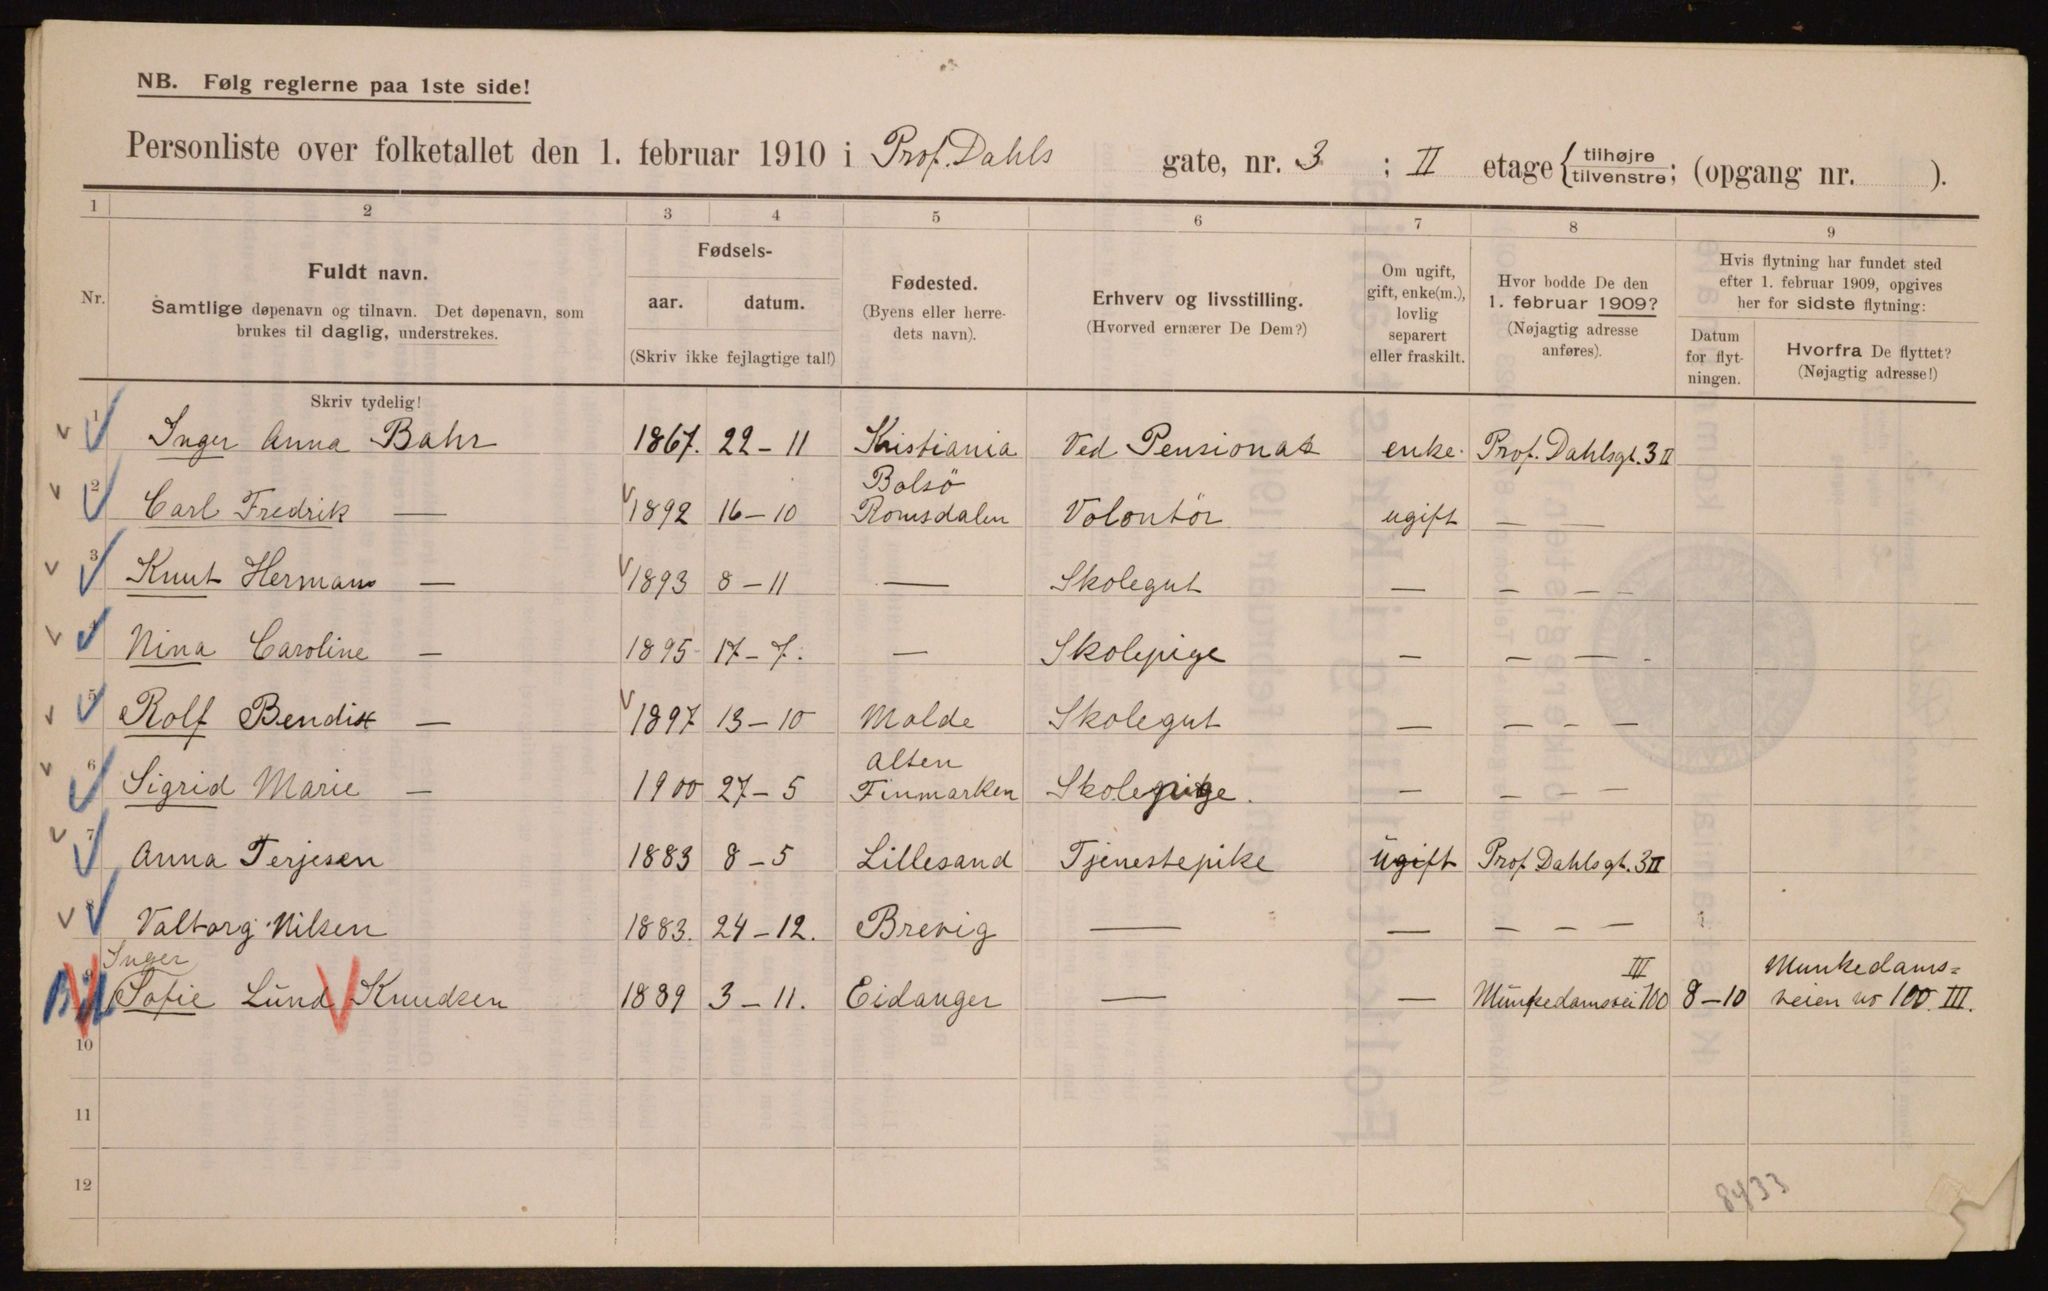 NB. Følg reglerne paa 1ste side!
Personliste over folketallet den 1. februar 1910 i Prof. Dahls gate, nr. 3 ; II etage { tilhøjre / tilvenstre ; (opgang nr. ).
1 2 3 4 5 6 7 8 9
Nr.
Fuldt navn.
Samtlige døpenavn og tilnavn. Det døpenavn, som
brukes til daglig, understrekes.
Fødsels-
aar. datum.
(Skriv ikke fejlagtige tal!)
Fødested.
(Byens eller herre-
dets navn).
Erhverv og livsstilling.
(Hvorved ernærer De Dem?)
Om ugift,
gift, enke(m.),
lovlig
separert
eller fraskilt.
Hvor bodde De den
1. februar 1909?
(Nøjagtig adresse
anføres).
Hvis flytning har fundet sted
efter 1. februar 1909, opgives
her for sidste flytning:
Datum
for flyt-
ningen.
Hvorfra De flyttet?
(Nøjagtig adresse!)
Skriv tydelig!
1 Inger Anna Bahr 1867. 22-11 Kristiania Ved Pensionat enke. Prof. Dahlsgt. 3 II
Bolsö
2 Carl Fredrik — 1892 16-10 Romsdalen Volontör ugift — —
3 Knut Herman — 1893 8-11 — Skolegut — — — —
4 Nina Caroline — 1895 17-7. — Skolepige — — — -
5 Rolf Bendix — 1897 13-10 Molde Skolegut — — — —
Alten
6 Sigrid Marie — 1900 27-5 Finmarken Skolepige. — — — —
7 Anna Terjesen 1883 8-5 Lillesand Tjenestepike ugift Prof. Dahlsgt. 3 II
8 Valborg Nilsen 1883. 24-12. Brevig — — — — —
Inger III Munkedams=
9 Sofie Lund Knudsen 1889 3-11. Eidanger — — Munkedamsvei 100 8-10 veien no 100. III.
10
11
12
8433